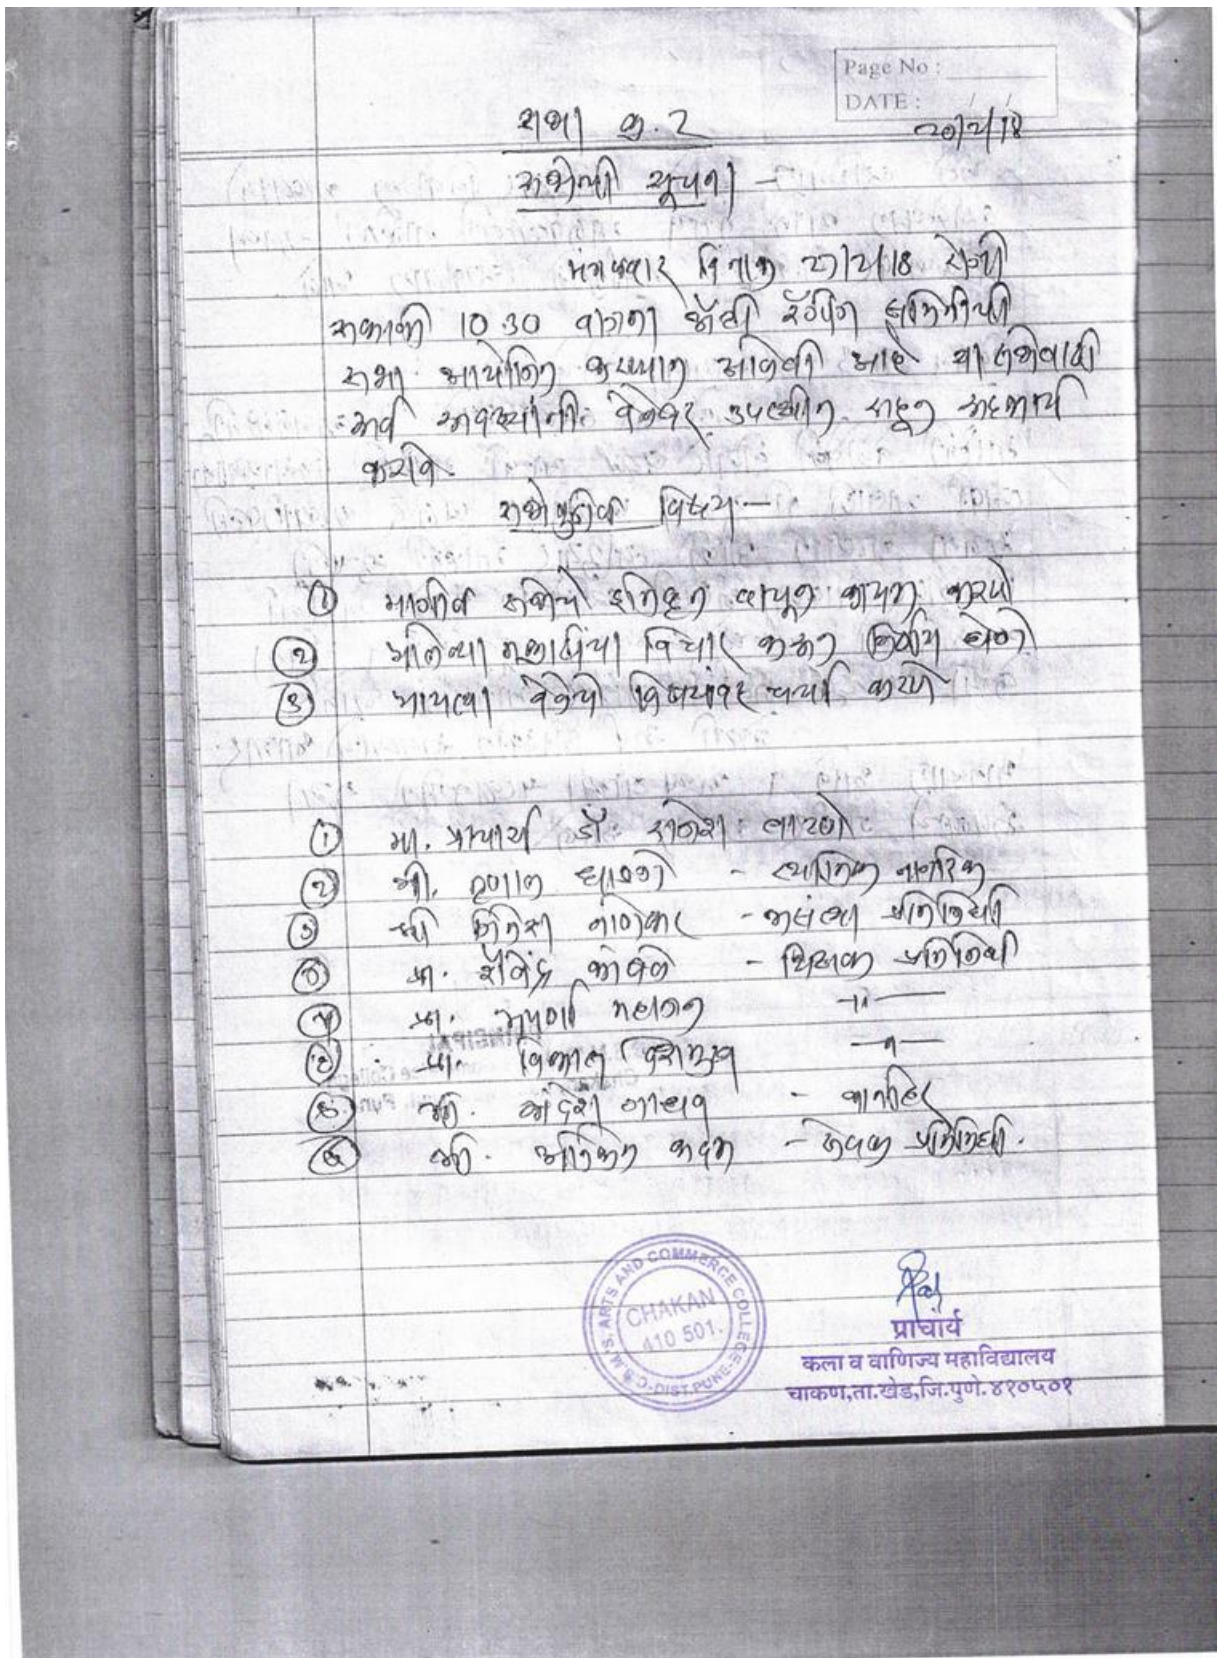 Page No :
DATE : / /
20/2/18
सभा क्र. 2
सभेची सूचना -
मंगळवार दिनांक 27/2/18 रोजी
सकाळी 10.30 वाजता अँटी रॅगिंग समितीची
सभा आयोजित करण्यात आलेली आहे या सभेसाठी
सर्व सदस्यांनी वेळेवर उपस्थित राहून सहकार्य
करावे.
सभेपुढील विषय :-
① मागील सभेचे इतिवृत्त वाचून कायम करणे
② आलेल्या तक्रारींचा विचार करून निर्णय घेणे
③ आयत्या वेळेचे विषयांवर चर्चा करणे
① मा. प्राचार्य डॉ. राजेश लाटणे
② श्री. - स्थानिक नागरिक
③ श्री - प्रतिनिधी
④ प्रा. - शिक्षक प्रतिनिधी
⑤ प्रा. अपर्णा महाजन -॥-
⑥ प्रा. देशमुख -॥-
⑦ श्री. जाधव -
⑧ श्री. अनिकेत कदम - सेवक प्रतिनिधी.
C.S.M.S. ARTS AND COMMERCE COLLEGE
CHAKAN
410 501.
DIST.PUNE
प्राचार्य
कला व वाणिज्य महाविद्यालय
चाकण,ता.खेड,जि.पुणे.४१०५०१